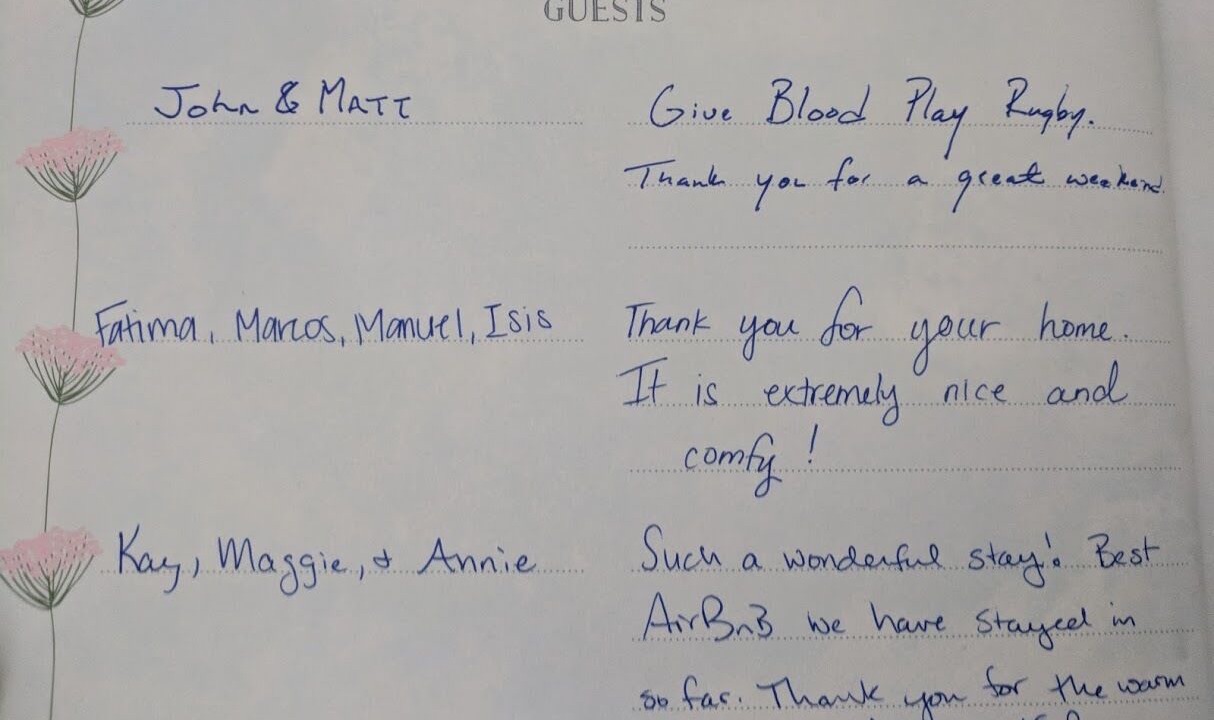 GUESTS
John & Matt
Give Blood Play Rugby.
Thank you for a great weekend
Fatima, Marcos, Manuel, Isis
Thank you for your home.
It is extremely nice and
comfy!
Kay, Maggie, & Annie
Such a wonderful stay! Best
AirBnB we have stayed in
so far. Thank you for the warm